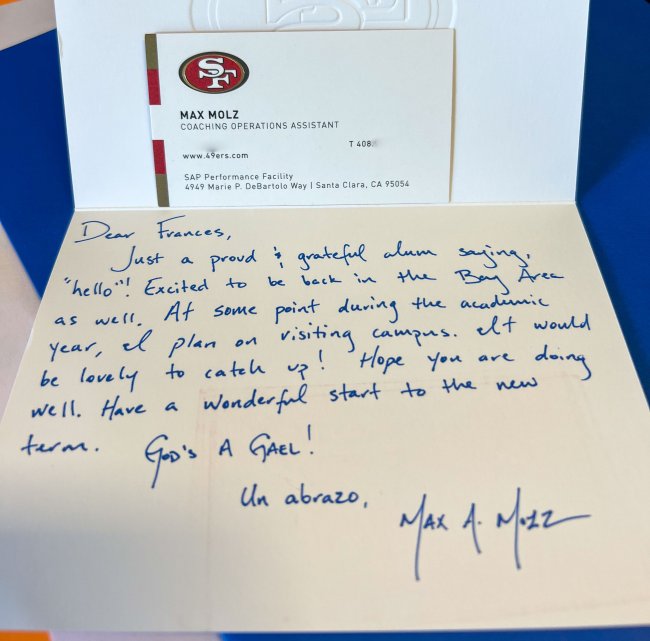 SF
MAX MOLZ
COACHING OPERATIONS ASSISTANT
T 408.
www.49ers.com
SAP Performance Facility
4949 Marie P. DeBartolo Way | Santa Clara, CA 95054
Dear Frances,
Just a proud & grateful alum saying,
"hello"! Excited to be back in the Bay Area
as well. At some point during the academic
year, I plan on visiting campus. It would
be lovely to catch up! Hope you are doing
well. Have a wonderful start to the new
term. GOD'S A GAEL!
Un abrazo,
MAX A. MOLZ